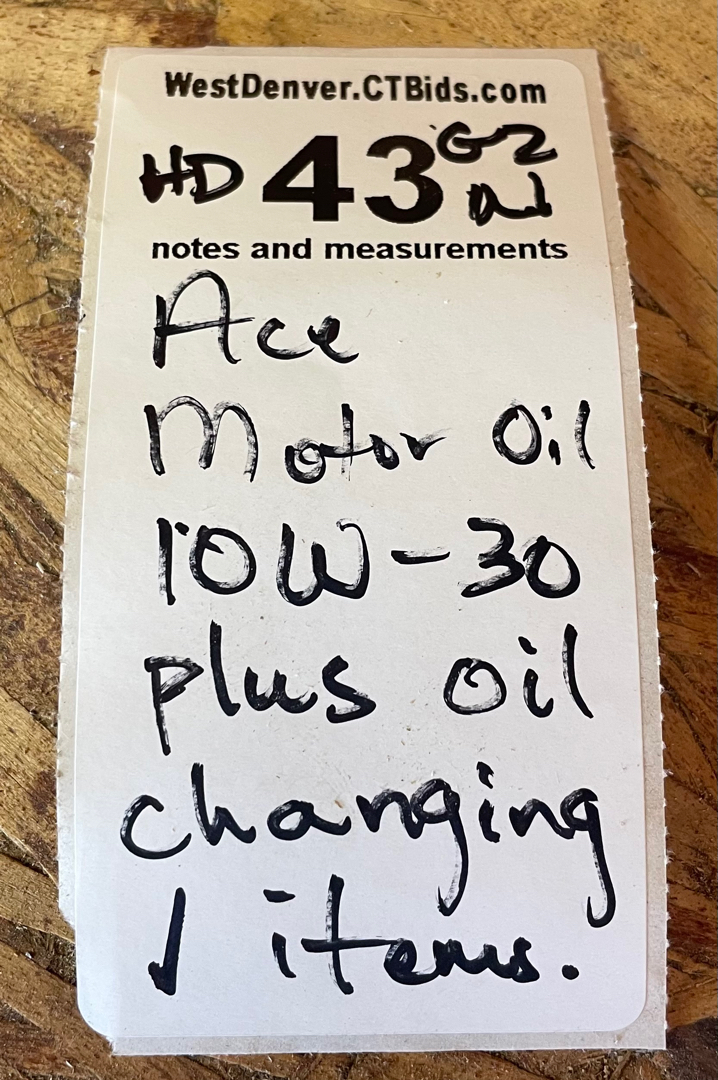 WestDenver.CTBids.com
HD 43 G2
notes and measurements
Ace
Motor Oil
10W-30
plus oil
changing
items.